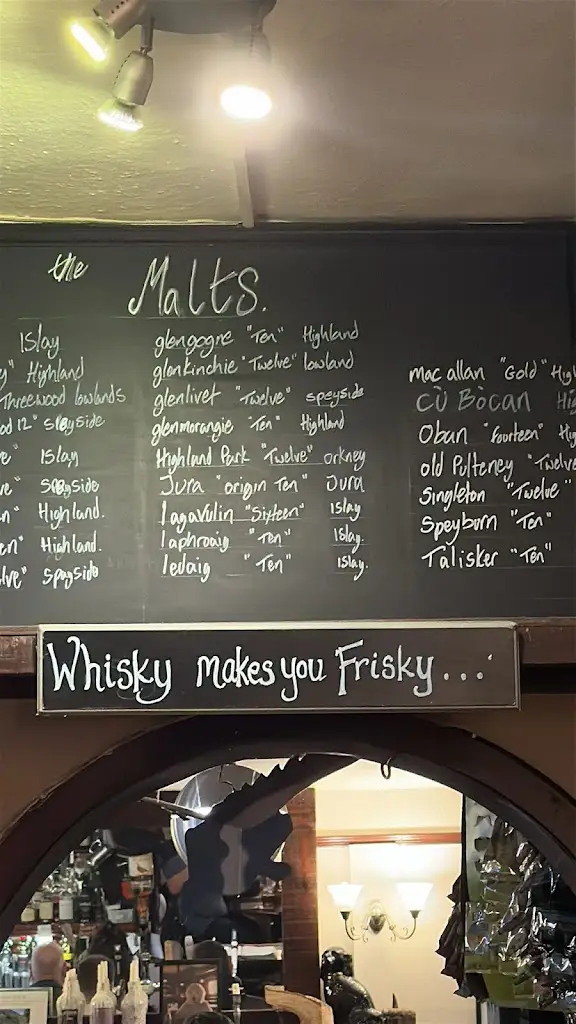 the Malts.
Islay
y" Highland
Threewood lowlands
od 12" speyside
e" Islay
ve" Speyside
n" Highland.
en" Highland.
lve" Speyside
glengogne "Ten" Highland
glenkinchie "Twelve" lowland
glenlivet "Twelve" speyside
glenmorangie "Ten" Highland
Highland Park "Twelve" orkney
Jura "origin Ten" Jura
lagavulin "Sixteen" Islay
laphroaig "Ten" Islay.
ledaig "Ten" Islay.
mac allan "Gold" Hig
CÙ BÒCAN Hi
Oban "fourteen" Hig
old Pulteney "Twelve
Singleton "Twelve"
Speyburn "Ten"
Talisker "Ten"
Whisky makes you Frisky...